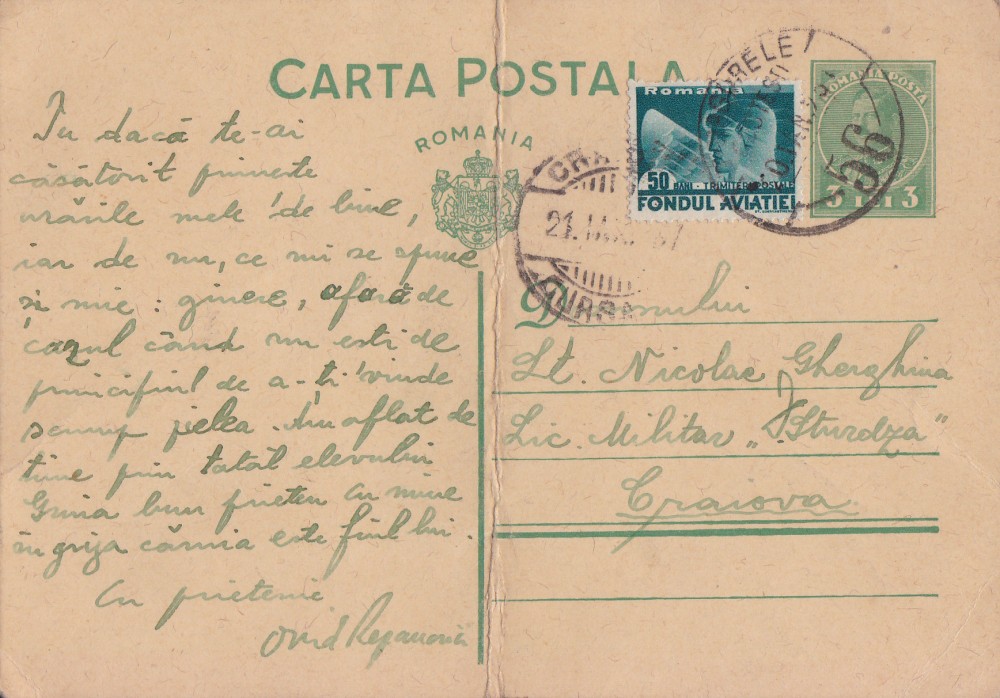 CARTA POSTALA
ROMANIA
Tu dacă te-ai
căsătorit primește
urările mele de bine,
iar de nu, ce mi se spune
și mie: ginere, afară de
cazul când nu ești de
principiul de a-ți vinde
scump pielea. Am aflat de
tine prin tatăl elevului
bun prieten cu mine
în grija căruia este fiul lui.
Cu prietenie
Ovid
Romania
50 BANI - TRIMITERI POSTALE
FONDUL AVIAȚIEI
ROMANIA POSTA
3 LEI 3
56
21. 37
Domnului
Lt. Nicolae Gherghina
Lic. Militar „D. Sturdza”
Craiova